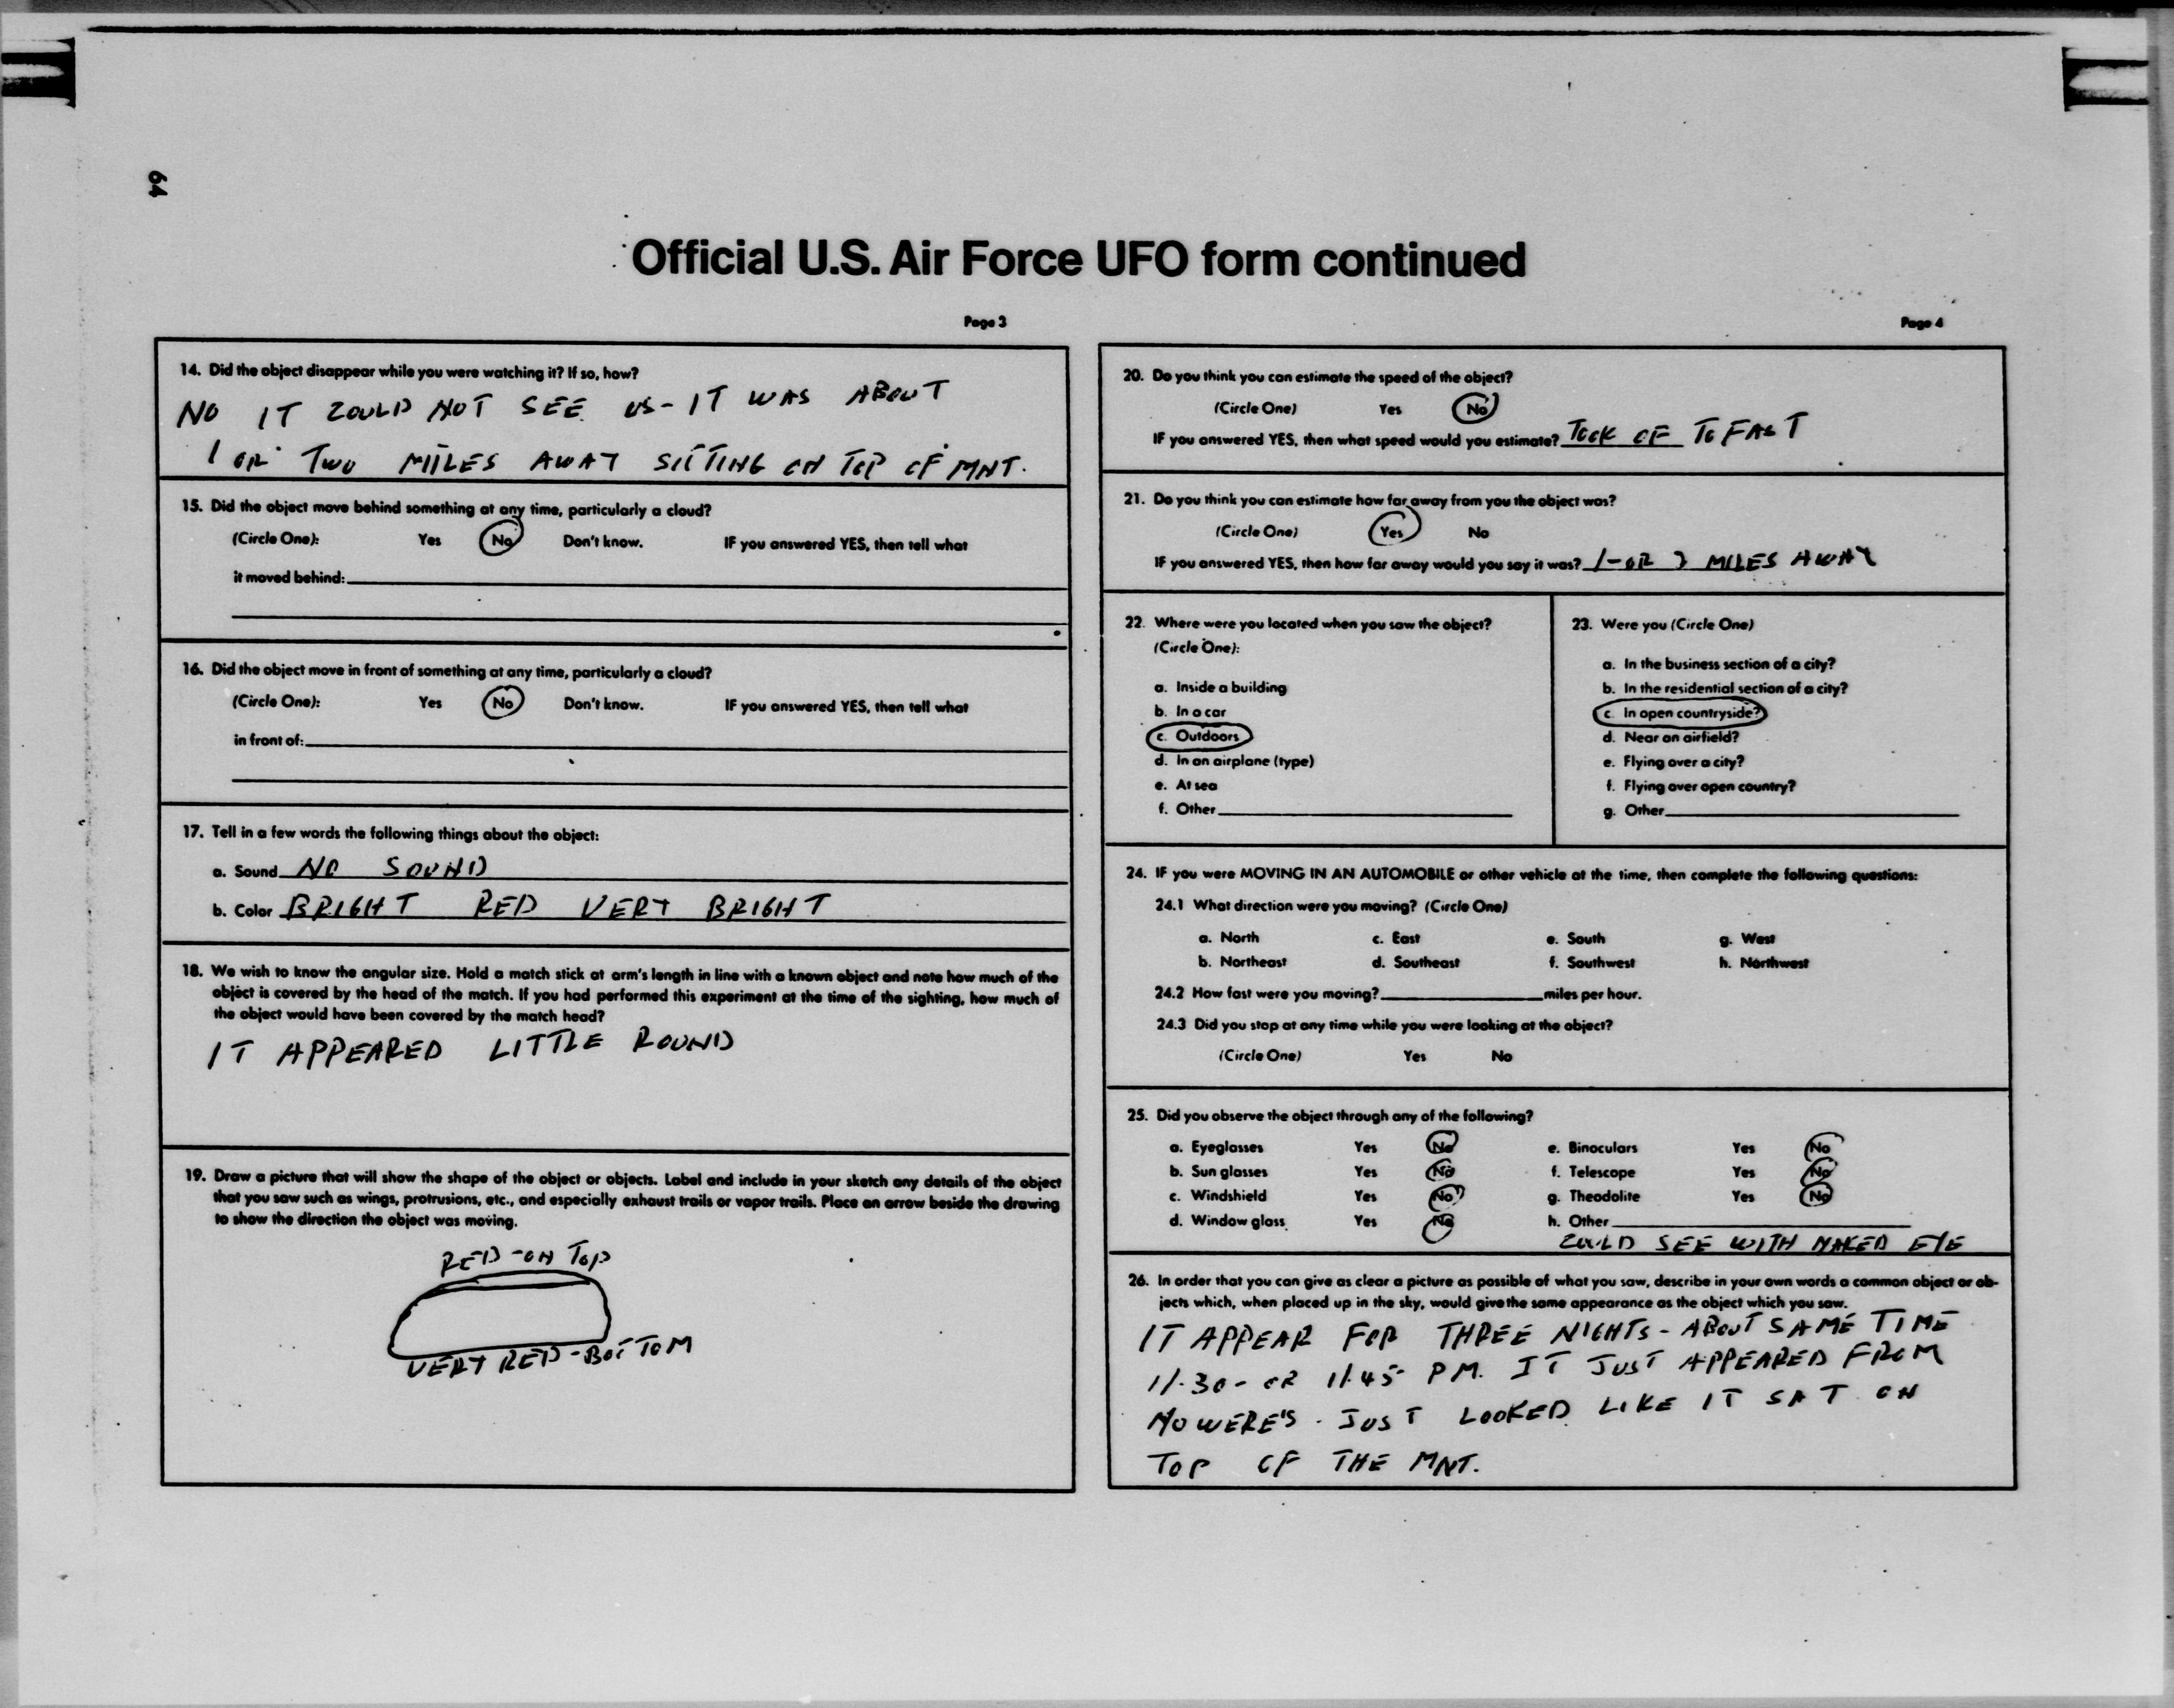 64
Official U.S. Air Force UFO form continued
Page 3
14. Did the object disappear while you were watching it? If so, how?
NO IT COULD NOT SEE US - IT WAS ABOUT
1 OR TWO MILES AWAY SITTING ON TOP OF MNT.
15. Did the object move behind something at any time, particularly a cloud?
(Circle One): Yes No Don't know. IF you answered YES, then tell what
it moved behind:
16. Did the object move in front of something at any time, particularly a cloud?
(Circle One): Yes No Don't know. IF you answered YES, then tell what
in front of:
17. Tell in a few words the following things about the object:
a. Sound NO SOUND
b. Color BRIGHT RED VERY BRIGHT
18. We wish to know the angular size. Hold a match stick at arm's length in line with a known object and note how much of the
object is covered by the head of the match. If you had performed this experiment at the time of the sighting, how much of
the object would have been covered by the match head?
IT APPEARED LITTLE ROUND
19. Draw a picture that will show the shape of the object or objects. Label and include in your sketch any details of the object
that you saw such as wings, protrusions, etc., and especially exhaust trails or vapor trails. Place an arrow beside the drawing
to show the direction the object was moving.
RED - ON TOP
VERY RED - BOTTOM
Page 4
20. Do you think you can estimate the speed of the object?
(Circle One) Yes No
IF you answered YES, then what speed would you estimate? TOOK OF TO FAST
21. Do you think you can estimate how far away from you the object was?
(Circle One) Yes No
IF you answered YES, then how far away would you say it was? 1 - OR 2 MILES AWAY
22. Where were you located when you saw the object?
(Circle One):
a. Inside a building
b. In a car
c. Outdoors
d. In an airplane (type)
e. At sea
f. Other
23. Were you (Circle One)
a. In the business section of a city?
b. In the residential section of a city?
c. In open countryside?
d. Near an airfield?
e. Flying over a city?
f. Flying over open country?
g. Other
24. IF you were MOVING IN AN AUTOMOBILE or other vehicle at the time, then complete the following questions:
24.1 What direction were you moving? (Circle One)
a. North c. East e. South g. West
b. Northeast d. Southeast f. Southwest h. Northwest
24.2 How fast were you moving? miles per hour.
24.3 Did you stop at any time while you were looking at the object?
(Circle One) Yes No
25. Did you observe the object through any of the following?
a. Eyeglasses Yes No e. Binoculars Yes No
b. Sun glasses Yes No f. Telescope Yes No
c. Windshield Yes No g. Theodolite Yes No
d. Window glass Yes No h. Other
COULD SEE WITH NAKED EYE
26. In order that you can give as clear a picture as possible of what you saw, describe in your own words a common object or ob-
jects which, when placed up in the sky, would give the same appearance as the object which you saw.
IT APPEAR FOR THREE NIGHTS - ABOUT SAME TIME
11.30 - OR 11.45 P M. IT JUST APPEARED FROM
NOWERE'S. JUST LOOKED LIKE IT SAT ON
TOP OF THE MNT.